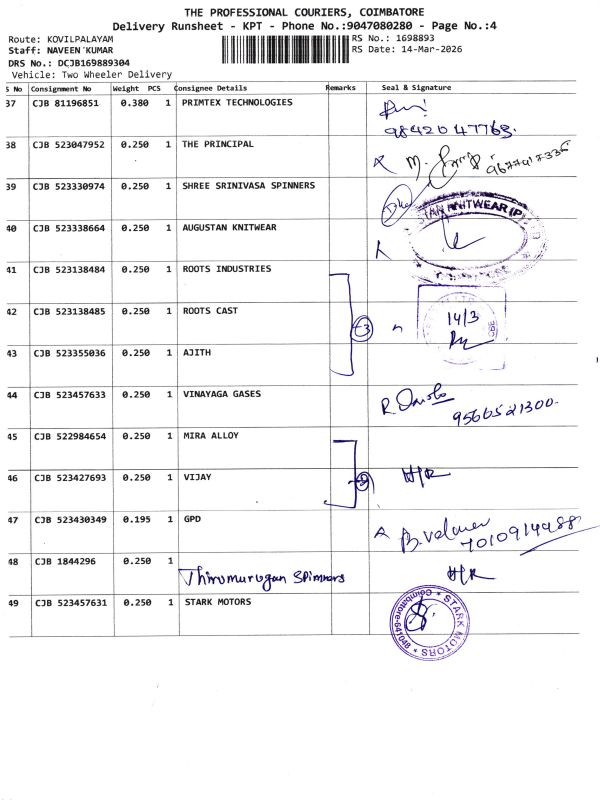 THE PROFESSIONAL COURIERS, COIMBATORE
Delivery Runsheet - KPT - Phone No.:9047080280 - Page No.:4
Route: KOVILPALAYAM RS No.: 1698893
Staff: NAVEEN KUMAR RS Date: 14-Mar-2026
DRS No.: DCJB169889304
Vehicle: Two Wheeler Delivery
S No Consignment No Weight PCS Consignee Details Remarks Seal & Signature
37 CJB 81196851 0.380 1 PRIMTEX TECHNOLOGIES
9842047763.
38 CJB 523047952 0.250 1 THE PRINCIPAL
39 CJB 523330974 0.250 1 SHREE SRINIVASA SPINNERS
40 CJB 523338664 0.250 1 AUGUSTAN KNITWEAR
KNITWEAR (P)
41 CJB 523138484 0.250 1 ROOTS INDUSTRIES
42 CJB 523138485 0.250 1 ROOTS CAST 3 14/3
43 CJB 523355036 0.250 1 AJITH
44 CJB 523457633 0.250 1 VINAYAGA GASES
9566521300.
45 CJB 522984654 0.250 1 MIRA ALLOY
46 CJB 523427693 0.250 1 VIJAY H/R
47 CJB 523430349 0.195 1 GPD
7010914988
48 CJB 1844296 0.250 1 Thirumurugan Spinners H/R
49 CJB 523457631 0.250 1 STARK MOTORS
STARK MOTORS * Coimbatore-641048 *